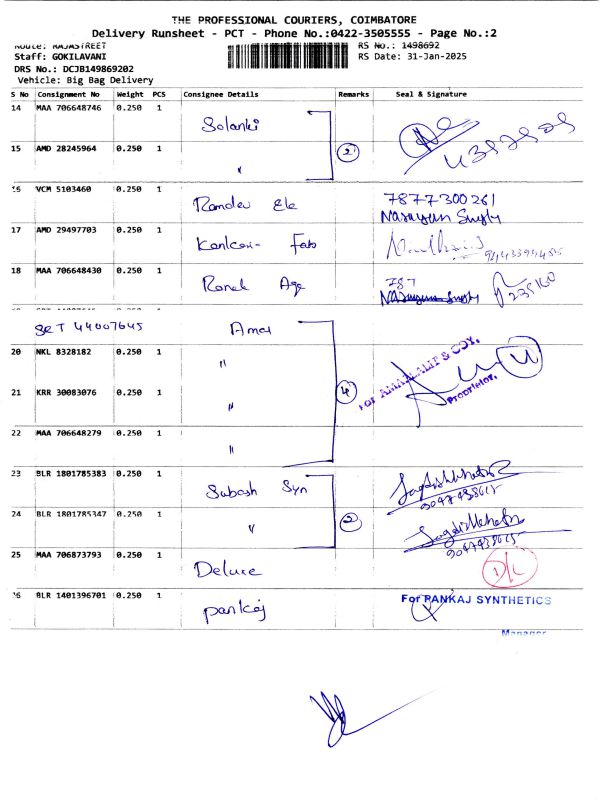 THE PROFESSIONAL COURIERS, COIMBATORE
Delivery Runsheet - PCT - Phone No.:0422-3505555 - Page No.:2
Route: RAJASTREET
RS No.: 1498692
Staff: GOKILAVANI
RS Date: 31-Jan-2025
DRS No.: DCJB149869202
Vehicle: Big Bag Delivery
S No Consignment No Weight PCS Consignee Details Remarks Seal & Signature
14 MAA 706648746 0.250 1 Solanki
15 AMD 28245964 0.250 1 " 2
16 VCM 5103460 0.250 1 Ramdev Ele 7877300261
Narayan Singh
17 AMD 29497703 0.250 1 Kankari Fab
18 MAA 706648430 0.250 1 Ronak Age 787
Narayan Singh
SRT 44007645 Amar
20 NKL 8328182 0.250 1 "
For AMARLALIF & COY,
21 KRR 30083076 0.250 1 " 4
Proprietor.
22 MAA 706648279 0.250 1 "
23 BLR 1801785383 0.250 1 Subash Syn
24 BLR 1801785347 0.250 1 " 2
25 MAA 706873793 0.250 1 Deluxe
26 BLR 1401396701 0.250 1 pankaj
For PANKAJ SYNTHETICS
Manager